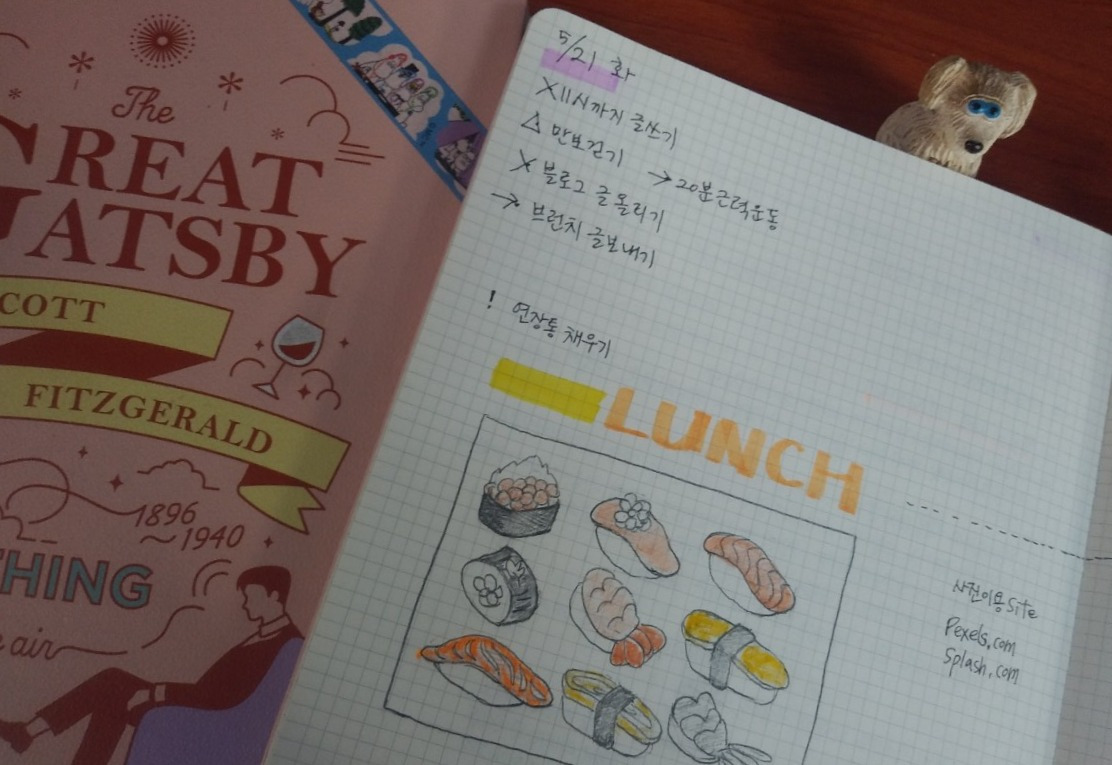 The
GREAT
GATSBY
COTT
FITZGERALD
1896
~1940
HING
air
5/21 화
X 11시까지 글쓰기
△ 만보걷기 → 20분근력운동
X 블로그 글 올리기
→ 브런치 글보내기
! 연장통 채우기
LUNCH
사진이용 Site
Pexels.com
Splash.com